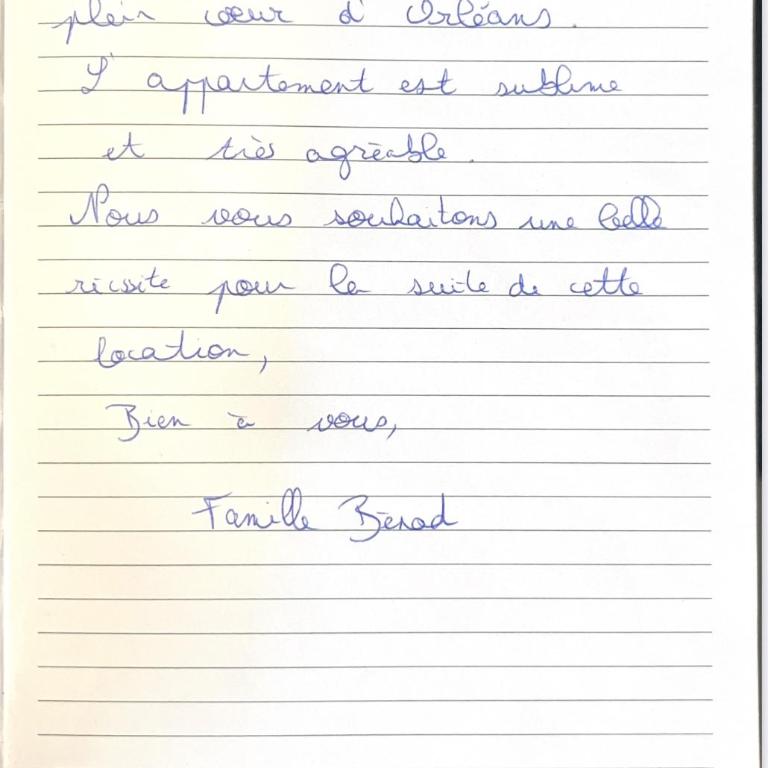 plein cœur d'Orléans.
L'appartement est sublime
et très agréable.
Nous vous souhaitons une belle
réussite pour la suite de cette
location,
Bien à vous,
Famille Bérod